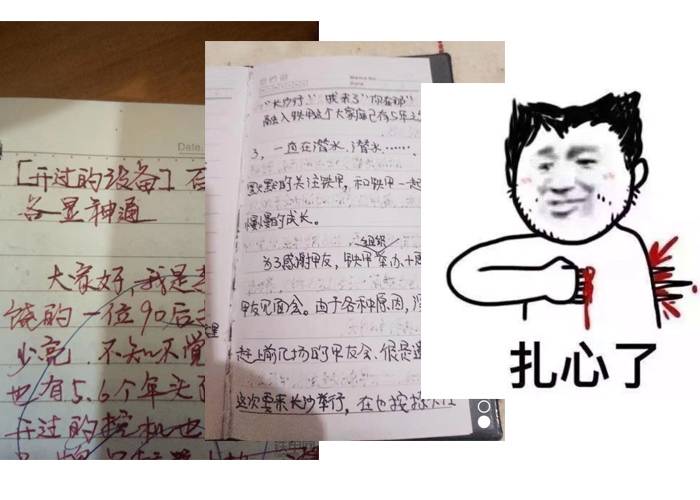 Date.
[开过的设备]
各显神通
大家好,我是
饶的一位90后
少亮.不知不觉
也有5.6个年头
开过的挖机也
Memo No.
Date
"长沙行!" 我来了"你在哪"
融入铁甲这个大家庭已有5年
3,一直在潜水、潜水……,
默默的关注铁甲,和铁甲一起
慢慢的成长。
组织
为了感谢甲友,铁甲举办十
甲友见面会。由于各种原因,没
赶上前几场的甲友会、很是遗
这次要来长沙举行,在也按
扎心了